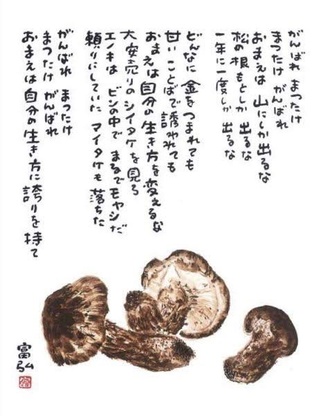 がんばれ まつたけ
まつたけ がんばれ
おまえは 山にしか出るな
松の根もとしか 出るな
一年に一度しか 出るな
どんなに 金をつまれても
甘いことばで 誘われても
おまえは自分の 生き方を変えるな
大安売りのシイタケを見ろ
エノキは ビンの中で まるでモヤシだ
頼りにしていた マイタケも落ちた
がんばれ まつたけ
まつたけ がんばれ
おまえは自分の生き方に誇りを持て
富弘